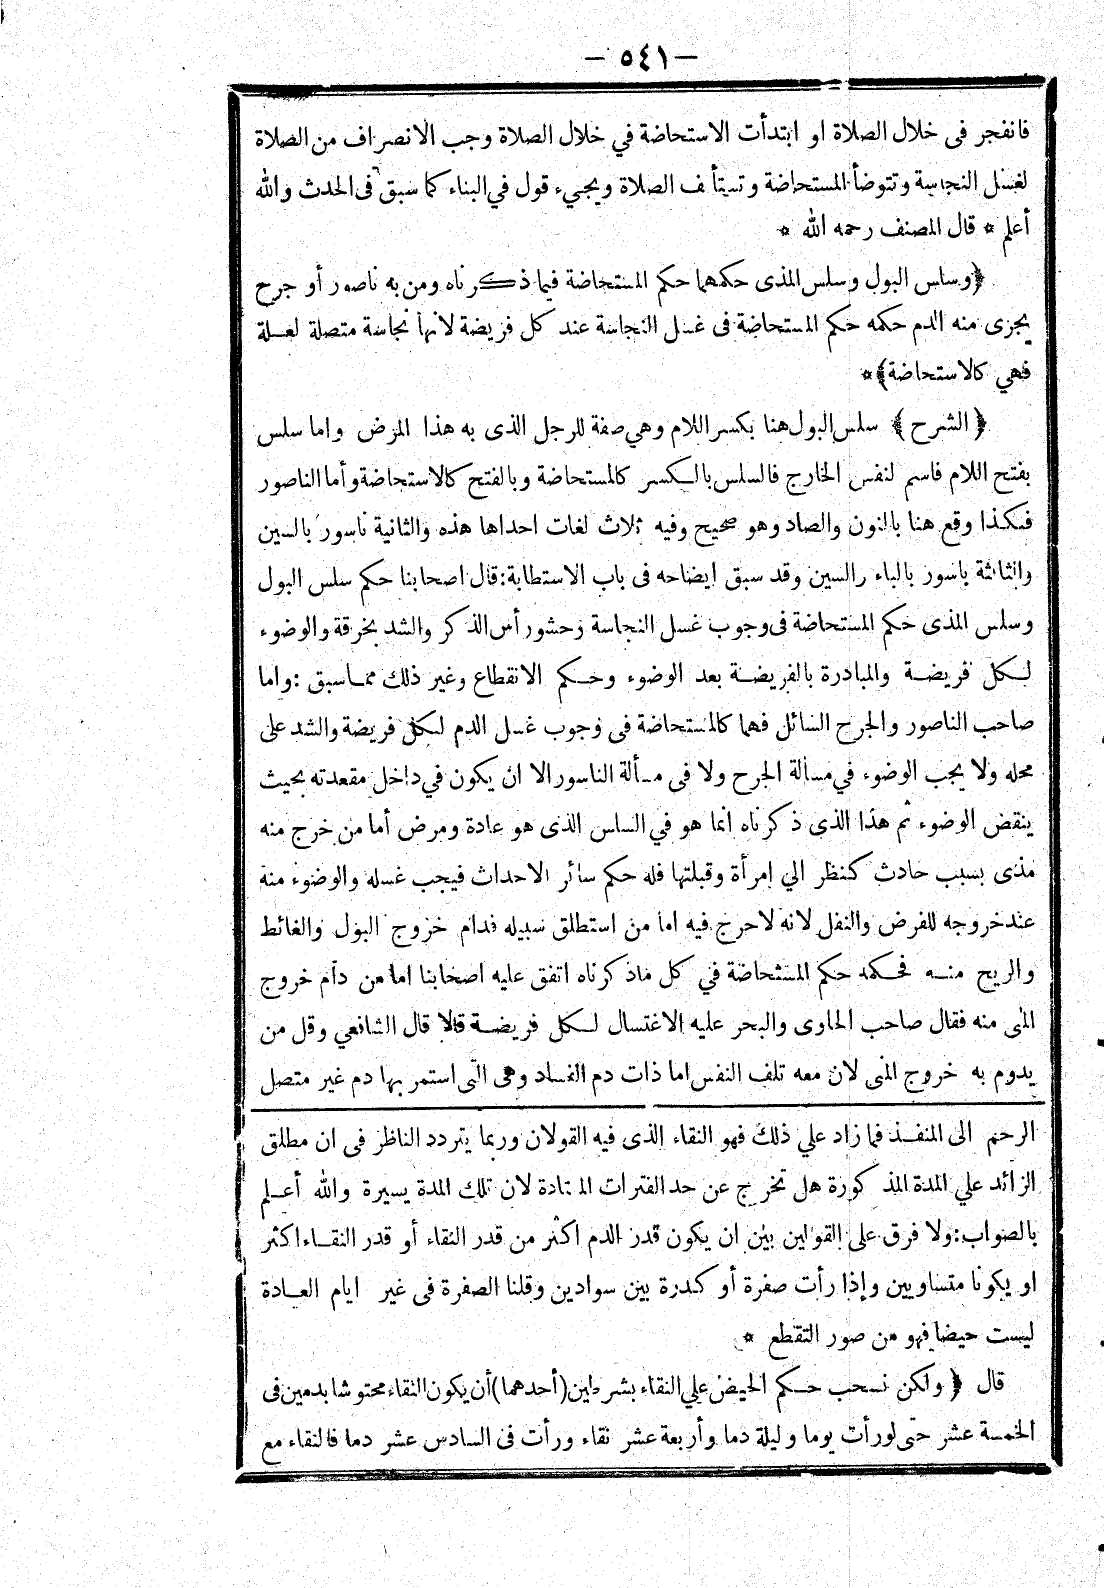 — ٥٤١ —
فانفجر فى خلال الصلاة او ابتدأت الاستحاضة في خلال الصلاة وجب الانصراف من الصلاة
لغسل النجاسة وتتوضأ المستحاضة وتستأنف الصلاة ويجيء قول في البناء كما سبق فى الحدث والله
أعلم * قال المصنف رحمه الله *
﴿وسلس البول وسلس المذى حكمهما حكم المستحاضة فيما ذكرناه ومن به ناصور أو جرح
يجرى منه الدم حكمه حكم المستحاضة فى غسل النجاسة عند كل فريضة لانها نجاسة متصلة لعلة
فهي كالاستحاضة﴾*
﴿الشرح﴾ سلس البول هنا بكسر اللام وهي صفة للرجل الذى به هذا المرض واما سلس
بفتح اللام فاسم لنفس الخارج فالسلس بالكسر كالمستحاضة وبالفتح كالاستحاضة وأما الناصور
فكذا وقع هنا بالنون والصاد وهو صحيح وفيه ثلاث لغات احداها هذه والثانية ناسور بالسين
والثالثة باسور بالباء والسين وقد سبق ايضاحه فى باب الاستطابة:قال اصحابنا حكم سلس البول
وسلس المذى حكم المستحاضة فى وجوب غسل النجاسة وحشو رأس الذكر والشد بخرقة والوضوء
لكل فريضة والمبادرة بالفريضة بعد الوضوء وحكم الانقطاع وغير ذلك مما سبق :واما
صاحب الناصور والجرح السائل فهما كالمستحاضة فى وجوب غسل الدم لكل فريضة والشد على
محله ولا يجب الوضوء في مسألة الجرح ولا فى مسألة الناسور الا ان يكون في داخل مقعدته بحيث
ينقض الوضوء ثم هذا الذى ذكرناه انما هو في السلس الذى هو عادة ومرض أما من خرج منه
مذى بسبب حادث كنظر الي امرأة وقبلتها فله حكم سائر الاحداث فيجب غسله والوضوء منه
عند خروجه للفرض والنفل لانه لا حرج فيه اما من استطلق سبيله فدام خروج البول والغائط
والريح منه فحكمه حكم المستحاضة في كل ما ذكرناه اتفق عليه اصحابنا اما من دام خروج
المنى منه فقال صاحب الحاوى والبحر عليه الاغتسال لكل فريضة قالا قال الشافعي وقل من
يدوم به خروج المنى لان معه تلف النفس اما ذات دم الفساد وهى التى استمر بها دم غير متصل
الرحم الى المنفذ فما زاد علي ذلك فهو النقاء الذى فيه القولان وربما يتردد الناظر فى ان مطلق
الزائد علي المدة المذكورة هل تخرج عن حد الفترات المعتادة لان تلك المدة يسيرة والله أعلم
بالصواب:ولا فرق على القولين بين ان يكون قدر الدم اكثر من قدر النقاء أو قدر النقاء اكثر
او يكونا متساويين وإذا رأت صفرة أو كدرة بين سوادين وقلنا الصفرة فى غير ايام العادة
ليست حيضا فهو من صور التقطع *
قال ﴿ولكن نسحب حكم الحيض علي النقاء بشرطين (أحدهما) أن يكون النقاء محتوشا بدمين فى
الخمسة عشر حتى لو رأت يوما وليلة دما وأربعة عشر نقاء ورأت فى السادس عشر دما فالنقاء مع